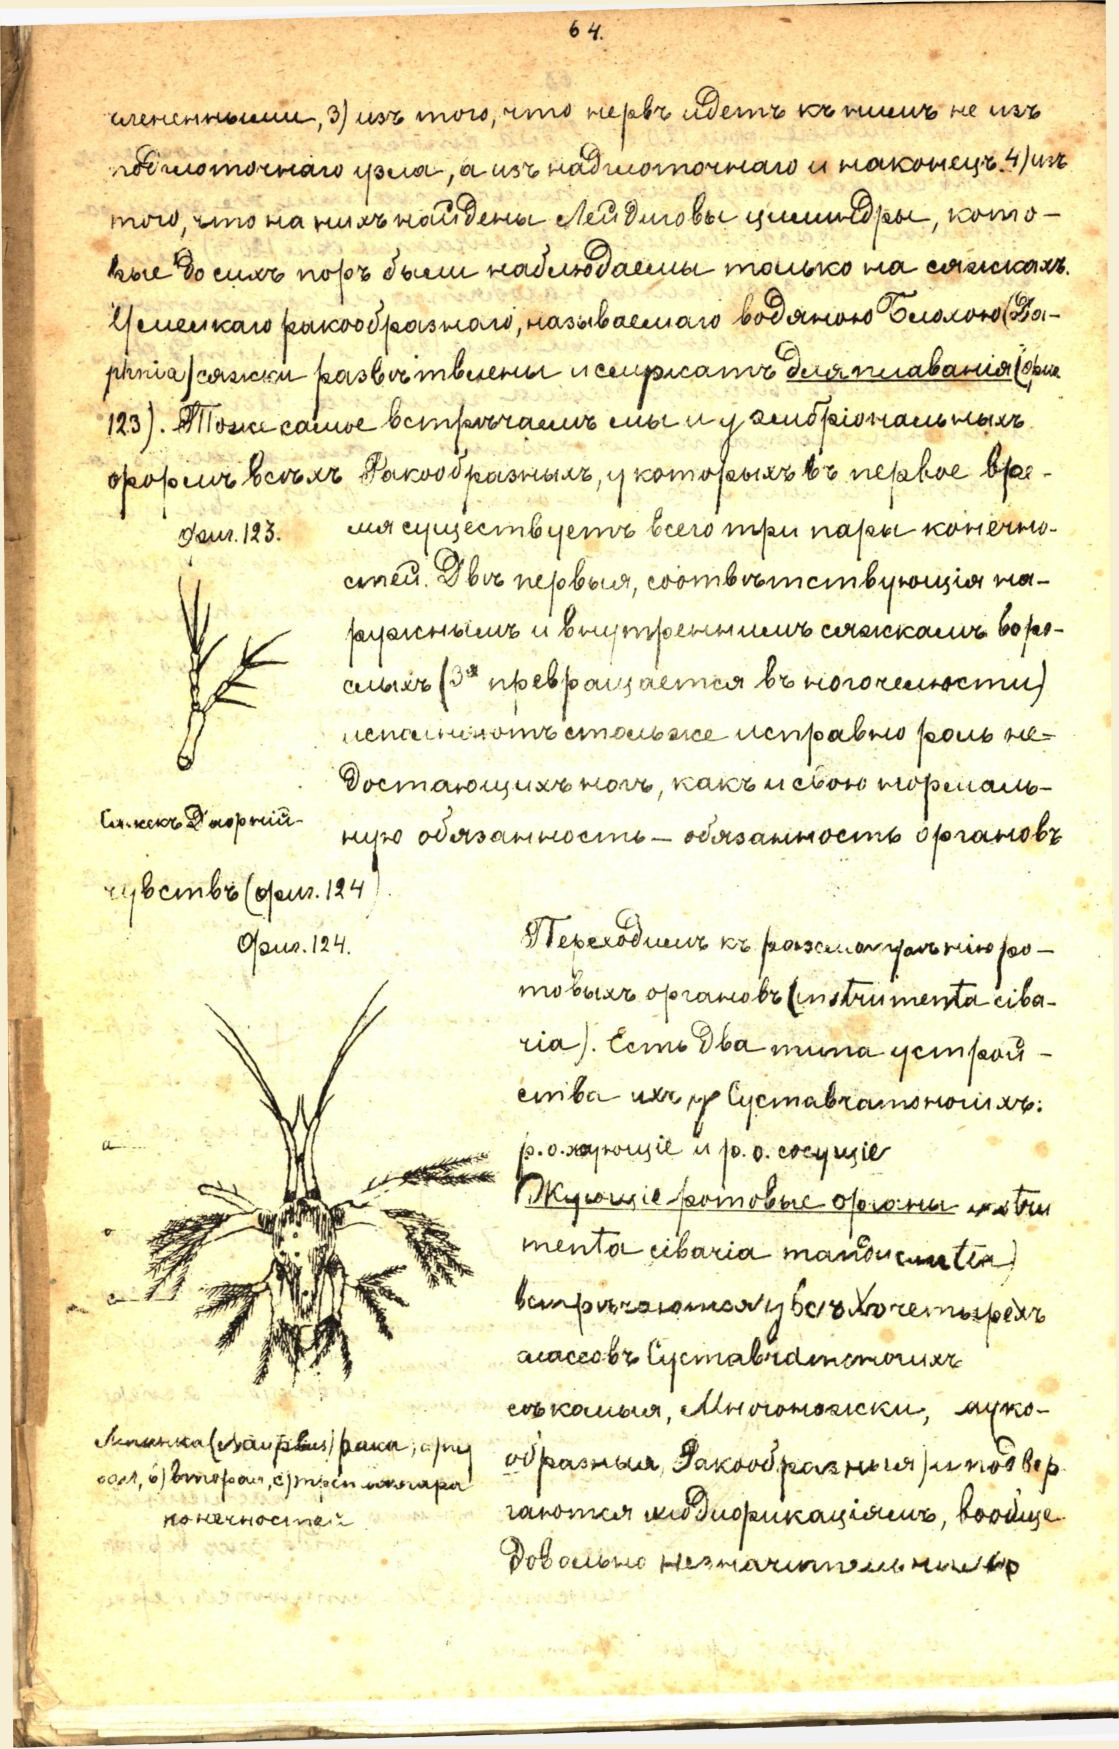 64.
члененными, 3) изъ того, что нервъ идетъ къ нимъ не изъ
подглоточнаго узла, а изъ надглоточнаго и наконецъ 4) изъ
того, что на нихъ найдены Лейдиговы цилиндры, кото-
рые до сихъ поръ были наблюдаемы только на сяжкахъ.
У мелкаго ракообразнаго, называемаго водяною Блохою (Da-
phnia) сяжки развѣтвлены и служатъ для плаванія (фиг.
123). Тоже самое встрѣчаемъ мы и у эмбріональныхъ
формъ всѣхъ Ракообразныхъ, у которыхъ въ первое вре-
мя существуетъ всего три пары конечно-
стей. Двѣ первыя, соотвѣтствующія на-
ружнымъ и внутреннимъ сяжкамъ взро-
слыхъ (3я превращается въ ногочелюсти)
исполняютъ столь же исправно роль не-
достающихъ ногъ, какъ и свою нормаль-
ную обязанность — обязанность органовъ
чувствъ (фиг. 124).
Фиг. 123.
Сяжекъ Дафній
Фиг. 124.
a
c
Личинка (Nauplius) рака, a) пер
вая, b) вторая, c) третія пара
конечностей
Переходимъ къ разсмотрѣнію ро-
товыхъ органовъ (instrumenta ciba-
ria). Есть два типа устрой-
ства ихъ у Суставчатоногихъ:
р. о. жующіе и р. о. сосущіе
Жующіе ротовые органы instru
menta cibaria
встрѣчаются у всѣхъ четырехъ
классовъ Суставчатоногихъ
сѣкомыя, Многоножки, пауко-
образныя, Ракообразныя) и подвер
гаются модификаціямъ, вообще
довольно незначительнымъ